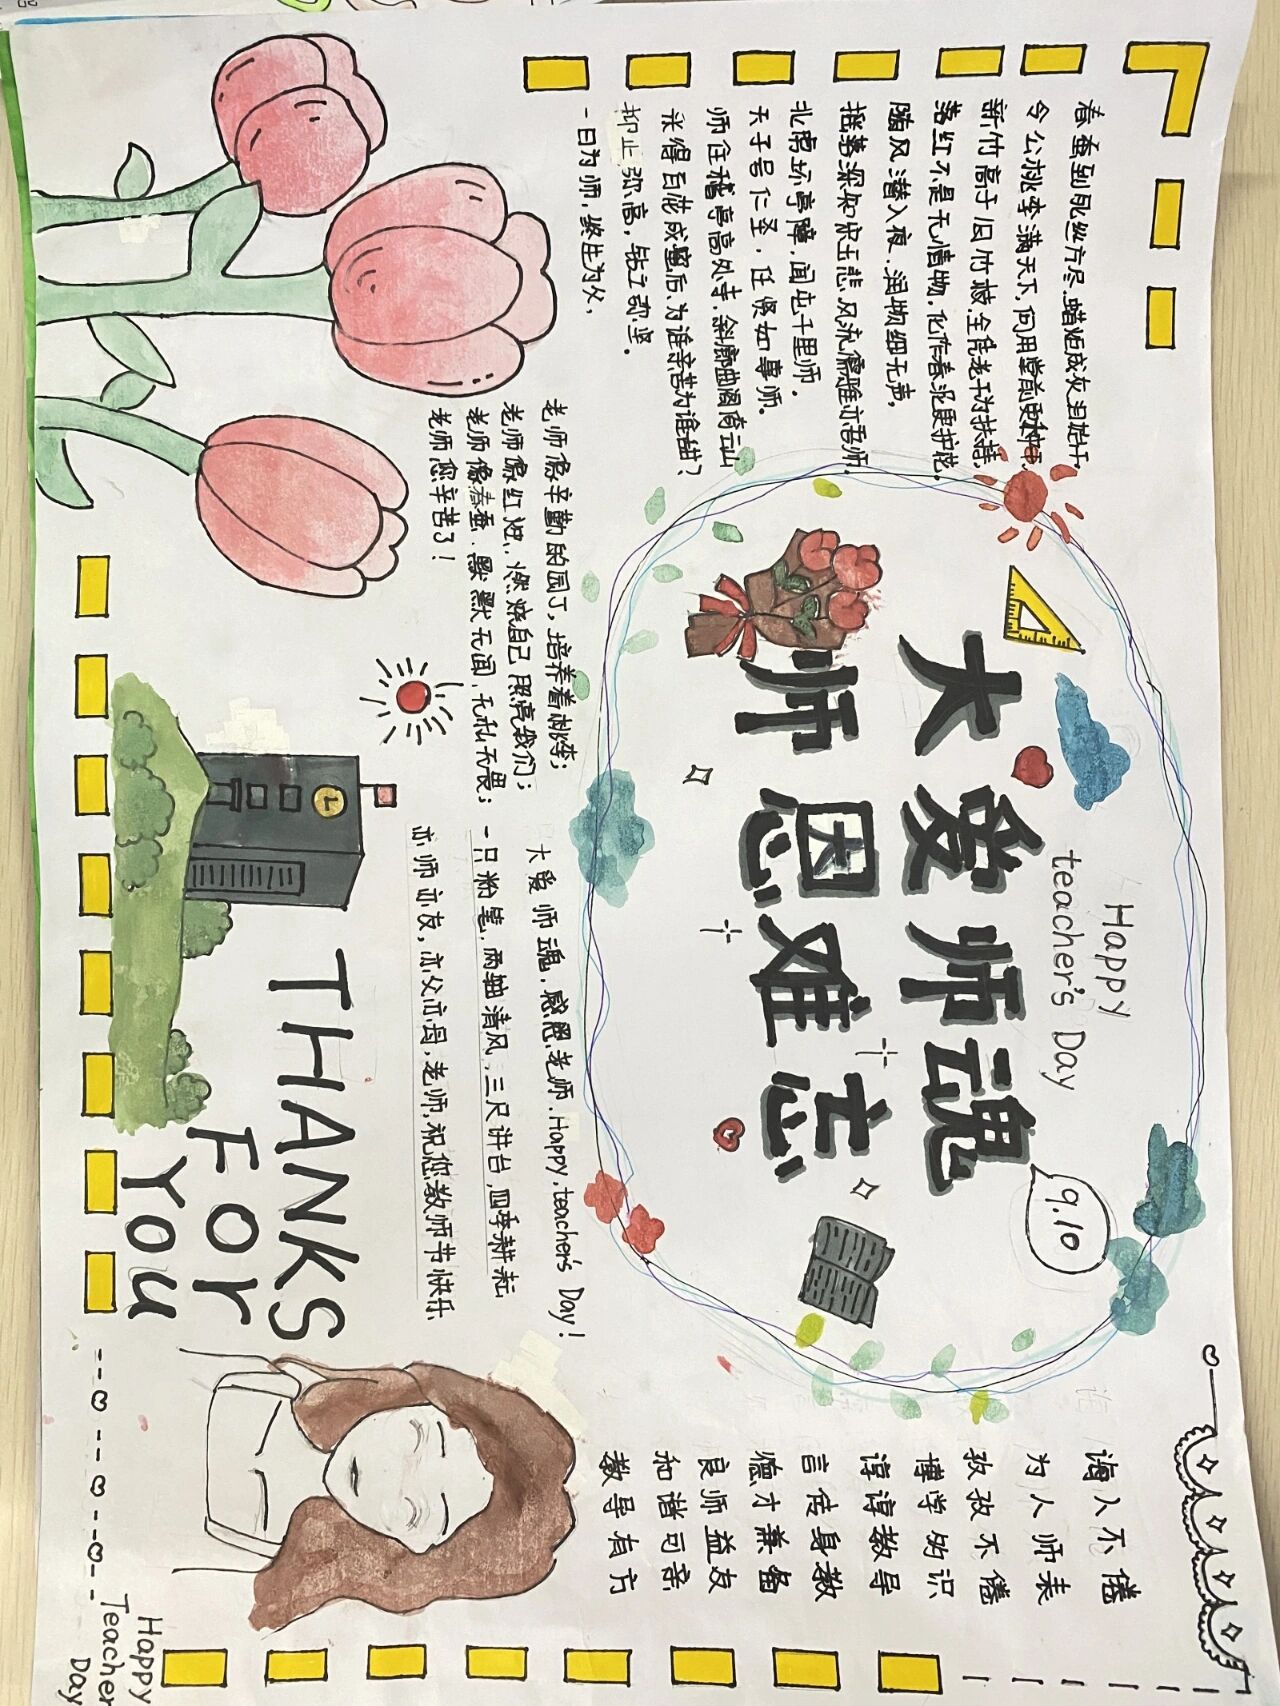 春蚕到死丝方尽,蜡炬成灰泪始干。
令公桃李满天下,何用堂前更种
新竹高于旧竹枝,全凭老干为扶持。
落红不是无情物,化作春泥更护花。
随风潜入夜,润物细无声。
摇落深知宋玉悲,风流儒雅亦吾师。
北南坏亭障,闻屯千里师。
天子号仁圣,任贤如事师。
师住稽亭高处寺,斜廊曲阁倚云山
采得百花成蜜后,为谁辛苦为谁甜?
仰止弥高,钻之弥坚。
一日为师,终生为父,
Happy
teacher's Day
大爱师魂
师恩难忘
9.10
诲人不倦
为人师表
孜孜不倦
博学的识
谆谆教导
言传身教
德才兼备
良师益友
和谐可亲
教导有方
老师像辛勤的园丁,培养着桃李;
老师像红烛,燃烧自己,照亮我们;
老师像春蚕,默默无闻,无私无畏;
老师,您辛苦了!
大爱师魂,感恩老师.Happy,teacher's Day!
一只粉笔,两袖清风,三尺讲台,四季耕耘
亦师亦友,亦父亦母,老师,祝您教师节快乐
THANKS
For
You
Happy
Teacher
Day